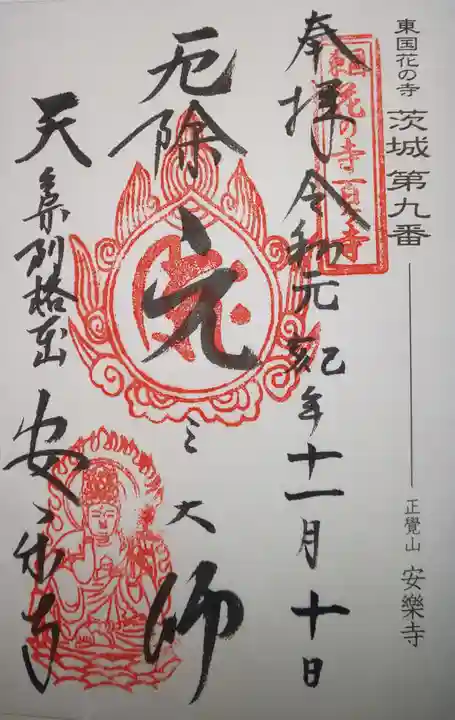 東国花の寺 茨城第九番
正覺山 安樂寺
東国花の寺百ヶ寺
奉拝 令和元己亥年十一月十日
厄除 元三大師
天台宗別格本山 安樂寺